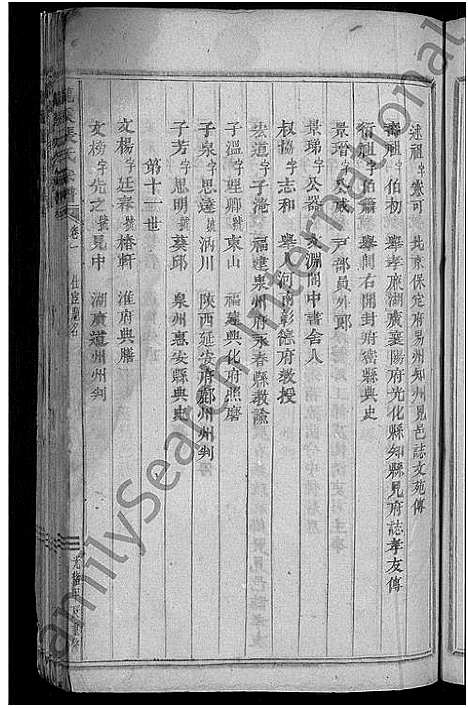 述祖字憲可 北京保定府易州知州見邑誌文苑傳
壽祖字伯初 舉孝廉湖廣襄陽府光化縣知縣見府誌孝友傳
衍祖字伯蕭 舉開右開封府密縣典史
景瑨字公咸 戶部員外郎
景瑞字公器 文淵閣中書舍人
叔協字志和 舉人河南彰德府教授
宏道字子淹 福建泉州府永春縣教諭
子溫字理卿號東山 福建興化府照磨
子泉字思達號汭川 陝西延安府鄜州州判
子芳字思明號葵邱 泉州惠安縣典史
第十一世
文楊字廷春號椿軒 淮府典膳
文榜字先之號見中 湖廣道州州判
卷一
仕宦題名
FamilySearch International